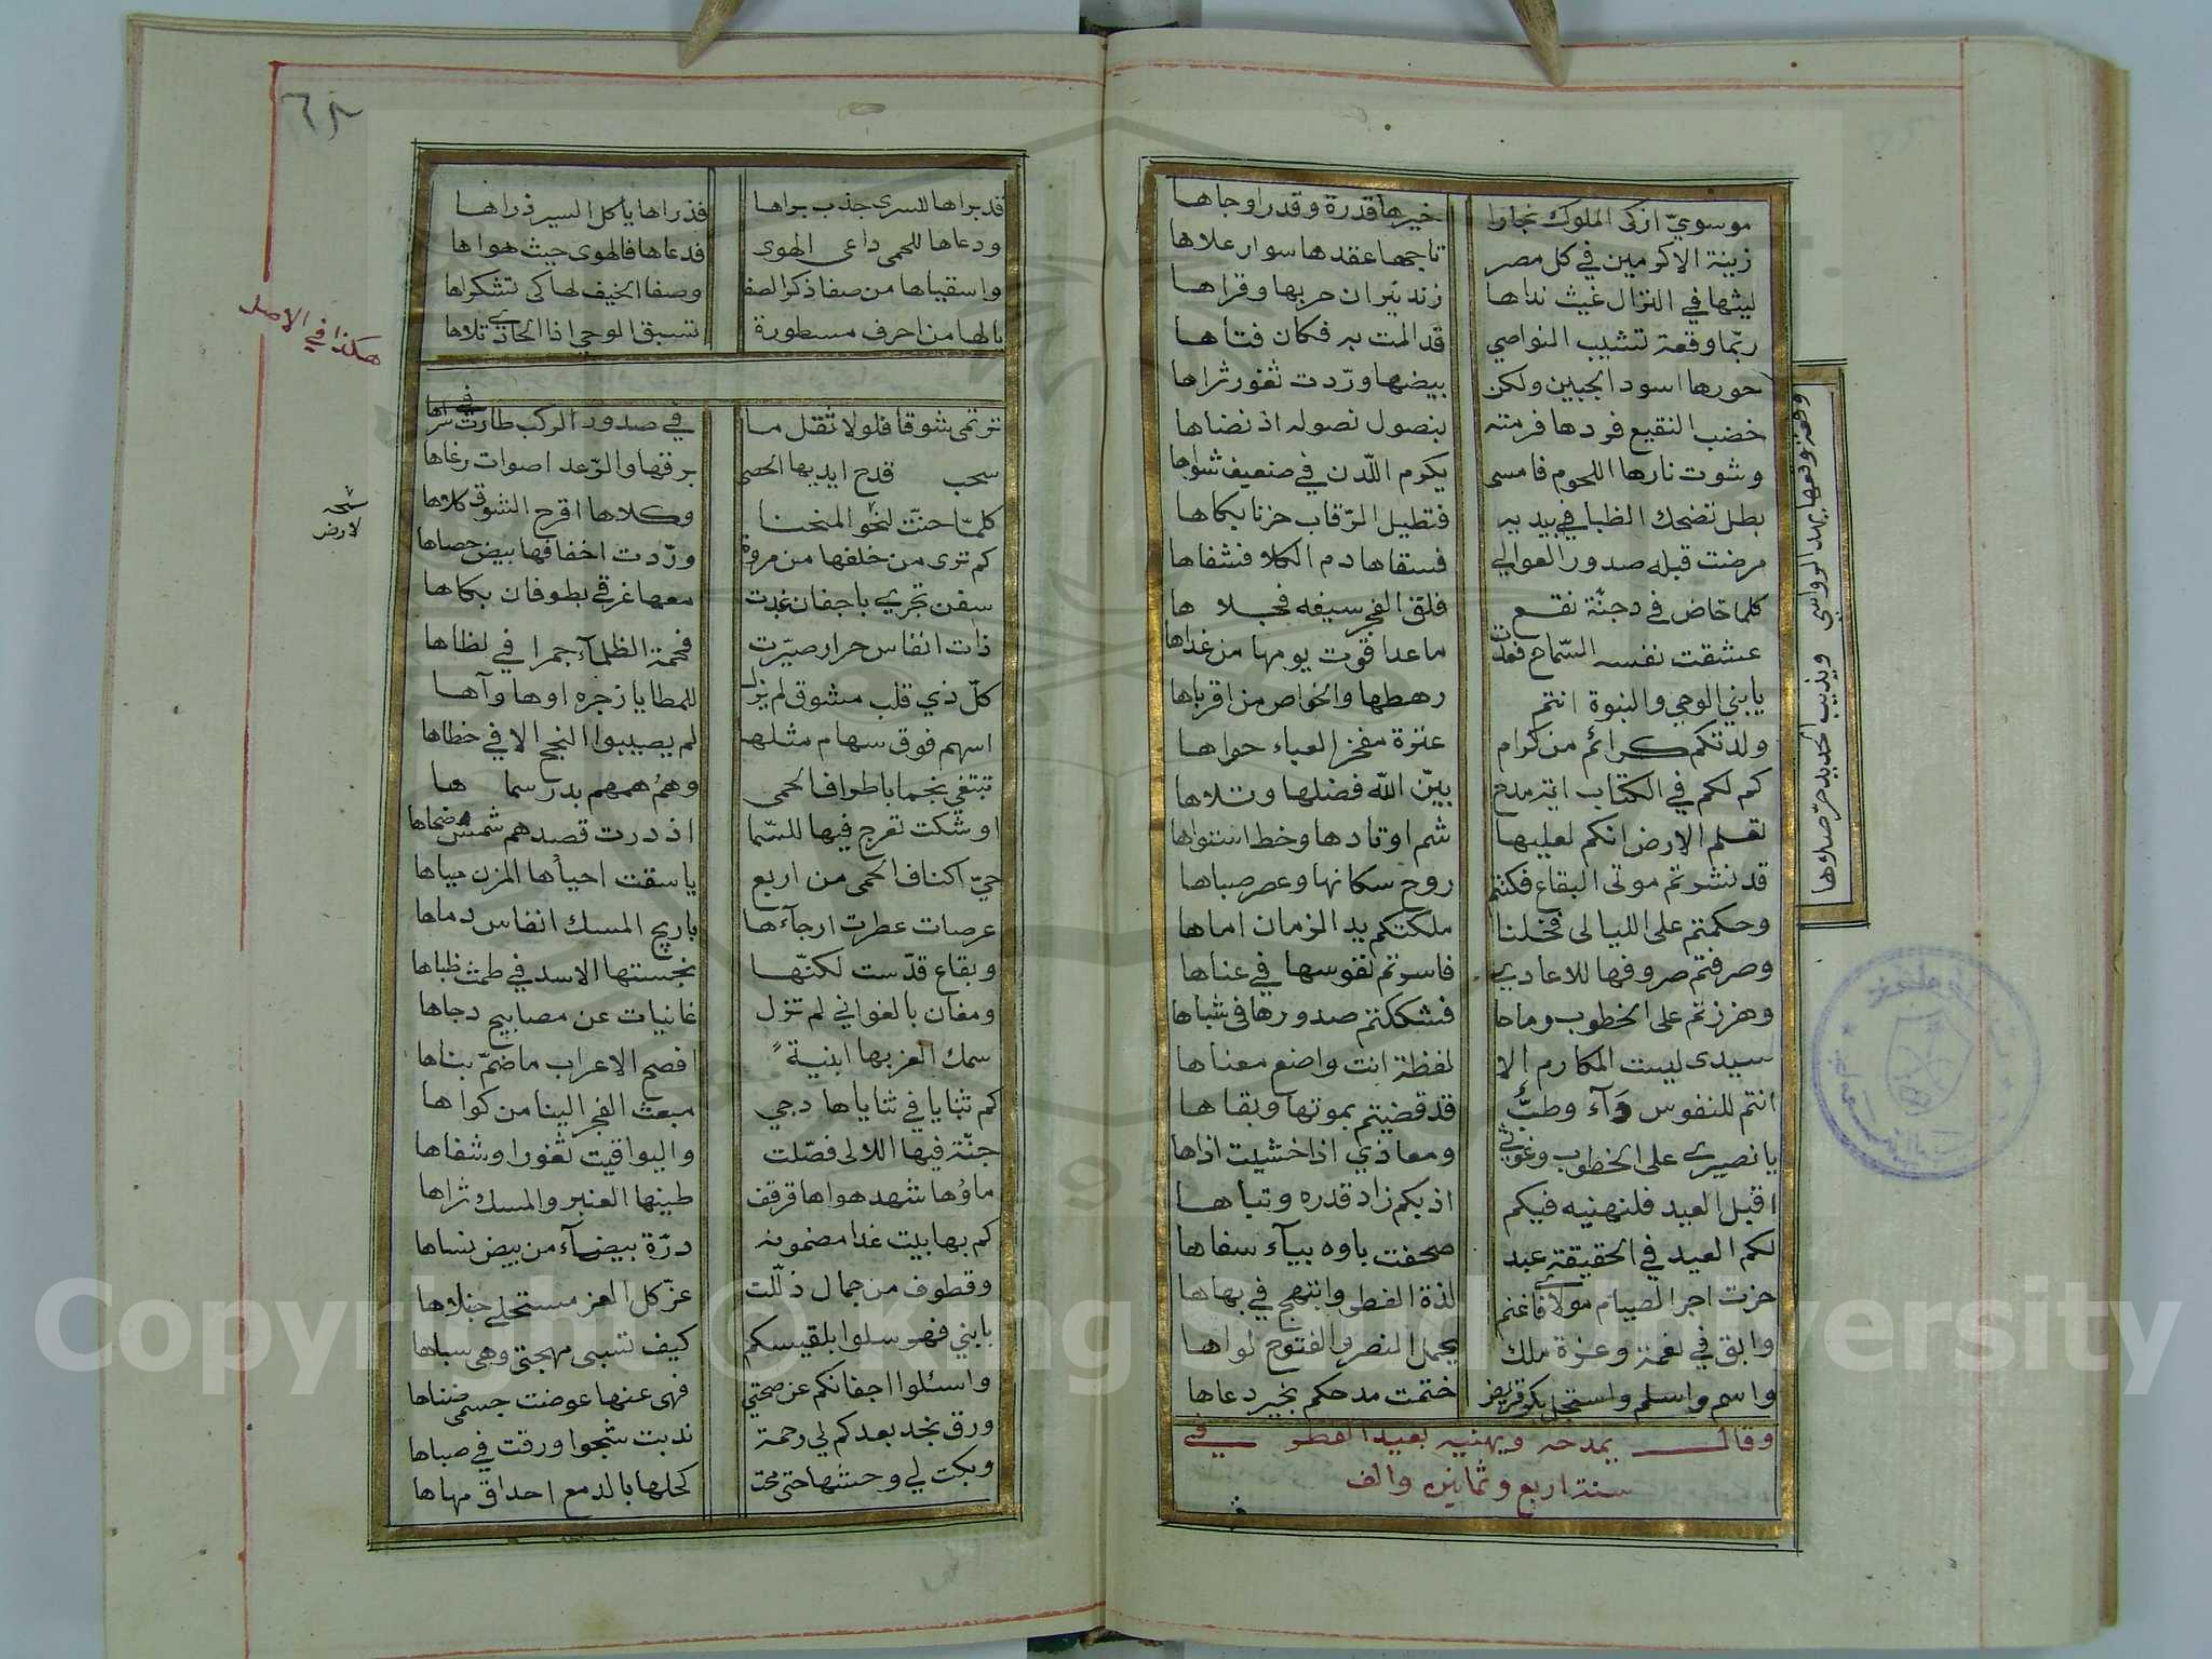 موسويّ ازكى الملوك نجارا خيرها قدرة وقدرا وجاها
زينة الاكرمين في كل مصر تاجها عقدها سوار علاها
ليثها في النزال غيث نداها زند نيران حربها وقراها
ربّما وقعة تشيب النواصي قد المت به فكان فتاها
وقعة وقعها يهد الرواسي ويذيب الحديد حرّ صلاها
حورها اسود الجبين ولكن بيضها ورّدت ثغور ثراها
خضب النقيع فردها فرمته بنصول نصوله اذ نضاها
وشوت نارها اللحوم فامسى يكرم اللّدن في صنعيف شواها
بطل تضحك الظبا في يديه فتطيل الرّقاب حزنا بكاها
مرضت قبله صدور العوالي فسقاها دم الكلا فشفاها
كلما خاض في دجنّة نقع فلق الفجر سيفه فجلاها
عشقت نفسه السّماح فعدّت ماعدا قوت يومها من غداها
يابني الوحي والنبوة انتم رهطها والخواص من اقرباها
ولدتكم كرائم من كرام عنزة مفخر العباء حواها
كم لكم في الكتاب اية مدح بيّن الله فضلها وتلاها
تعلم الارض انكم لعليها شم اوتادها وخط استواها
قد نشرتم موتى البقاع فكنتم روح سكانها وعصر صباها
وحكمتم على الليالى فخلنا ملكتكم يد الزمان اماها
وصرفتم صروفها للاعادي فاسرتم نفوسها في عناها
وهززتم على الخطوب رماحا فشككتم صدورها في شباها
سيدى ليست المكارم الا لفظة انت واضع معناها
انتم للنفوس دآء وطبّ قد قضيتم بموتها وبقاها
يا نصيري على الخطوب وغوثي ومعاذي اذا خشيت اذاها
اقبل العيد فلنهنيه فيكم اذ بكم زاد قدره وتباها
لكم العيد في الحقيقة عبد صحفت باوه بيآء سفاها
حزت اجر الصيام مولاي فاغنم لذة الفطر وابتهج في بهاها
وابق في نعمة وعزة ملك يحمل النصر والفتوح لواها
واسم واسلم واستجل بكر قريض ختمت مدحكم بخير دعاها
وقال يمدحه ويهنيه بعيد الفطر في
سنة اربع وثمانين والف
٦٨
قد براها للسرى جذب براها فذراها ياكل السير ذراها
ودعاها للحمى داعى الهوى فدعاها فالهوى حيث هواها
واسقياها من صفا ذكر الصفا وصفا الخيف لها كى تشكراها
يالها من احرف مسطورة تسبق الوحي اذا الحادي تلاها
هكذا في الاصل
ترتمى شوقا فلولا ثقل ما في صدور الركب طارت في سراها
سحب قدح ايديها الحصى برقها والرّعد اصوات رغاها
كلمّا حنّت لنحو المنحنا وكلاها اقرح الشوق كلاها
نسخة
لارض
كم ترى من خلفها من مروة ورّدت اخفافها بيض حصاها
سفن تجري باجفان غدت معها غرقي بطوفان بكاها
ذات انفاس حرار صيّرت فحمة الظلمآء جمرا في لظاها
كلّ ذي قلب مشوق لم يزل للمطايا زجره اوها وآها
اسهم فوق سهام مثلها لم يصيبوا النجح الا في خطاها
تبتغي نجما باطواف الحمى وهم همهم بدر سماها
اوشكت تعرج فيها للسّما اذ درت قصدهم شمس ضحاها
حيّ اكناف الحمى من اربع يا سقت احيأها المزن مياها
عرصات عطرت ارجآءها باريج المسك انفاس دماها
وبقاع قدّست لكنّها نجستها الاسد في طمث ظباها
ومغان بالغواني لم تزل غانيات عن مصابيح دجاها
سمك العز بها ابنية افصح الاعراب ماضمّ بناها
كم ثنايا في ثناياها دجي مبعث الفجر الينا من كواها
جنّة فيها اللالى فصّلت واليواقيت ثغورا وشفاها
ماؤها شهد هواها قرقف طينها العنبر والمسك ثراها
كم بها بيت غدا مضمونه درّة بيضآء من بيض نساها
وقطوف من جمال ذلّلت عزّ كل العز مستحلي جناها
يابني فهر سلوا بلقيسكم كيف تسبى مهجتي وهي سباها
واسئلوا اجفانكم عن صحتي فهى عنها عوضت جسمى ضناها
ورق نجد بعدكم لي رحمة ندبت شجوا ورقت في صباها
وبكت لي وحشها حتى محت كحلها بالدمع احداق مهاها
Copyright © King Saud University